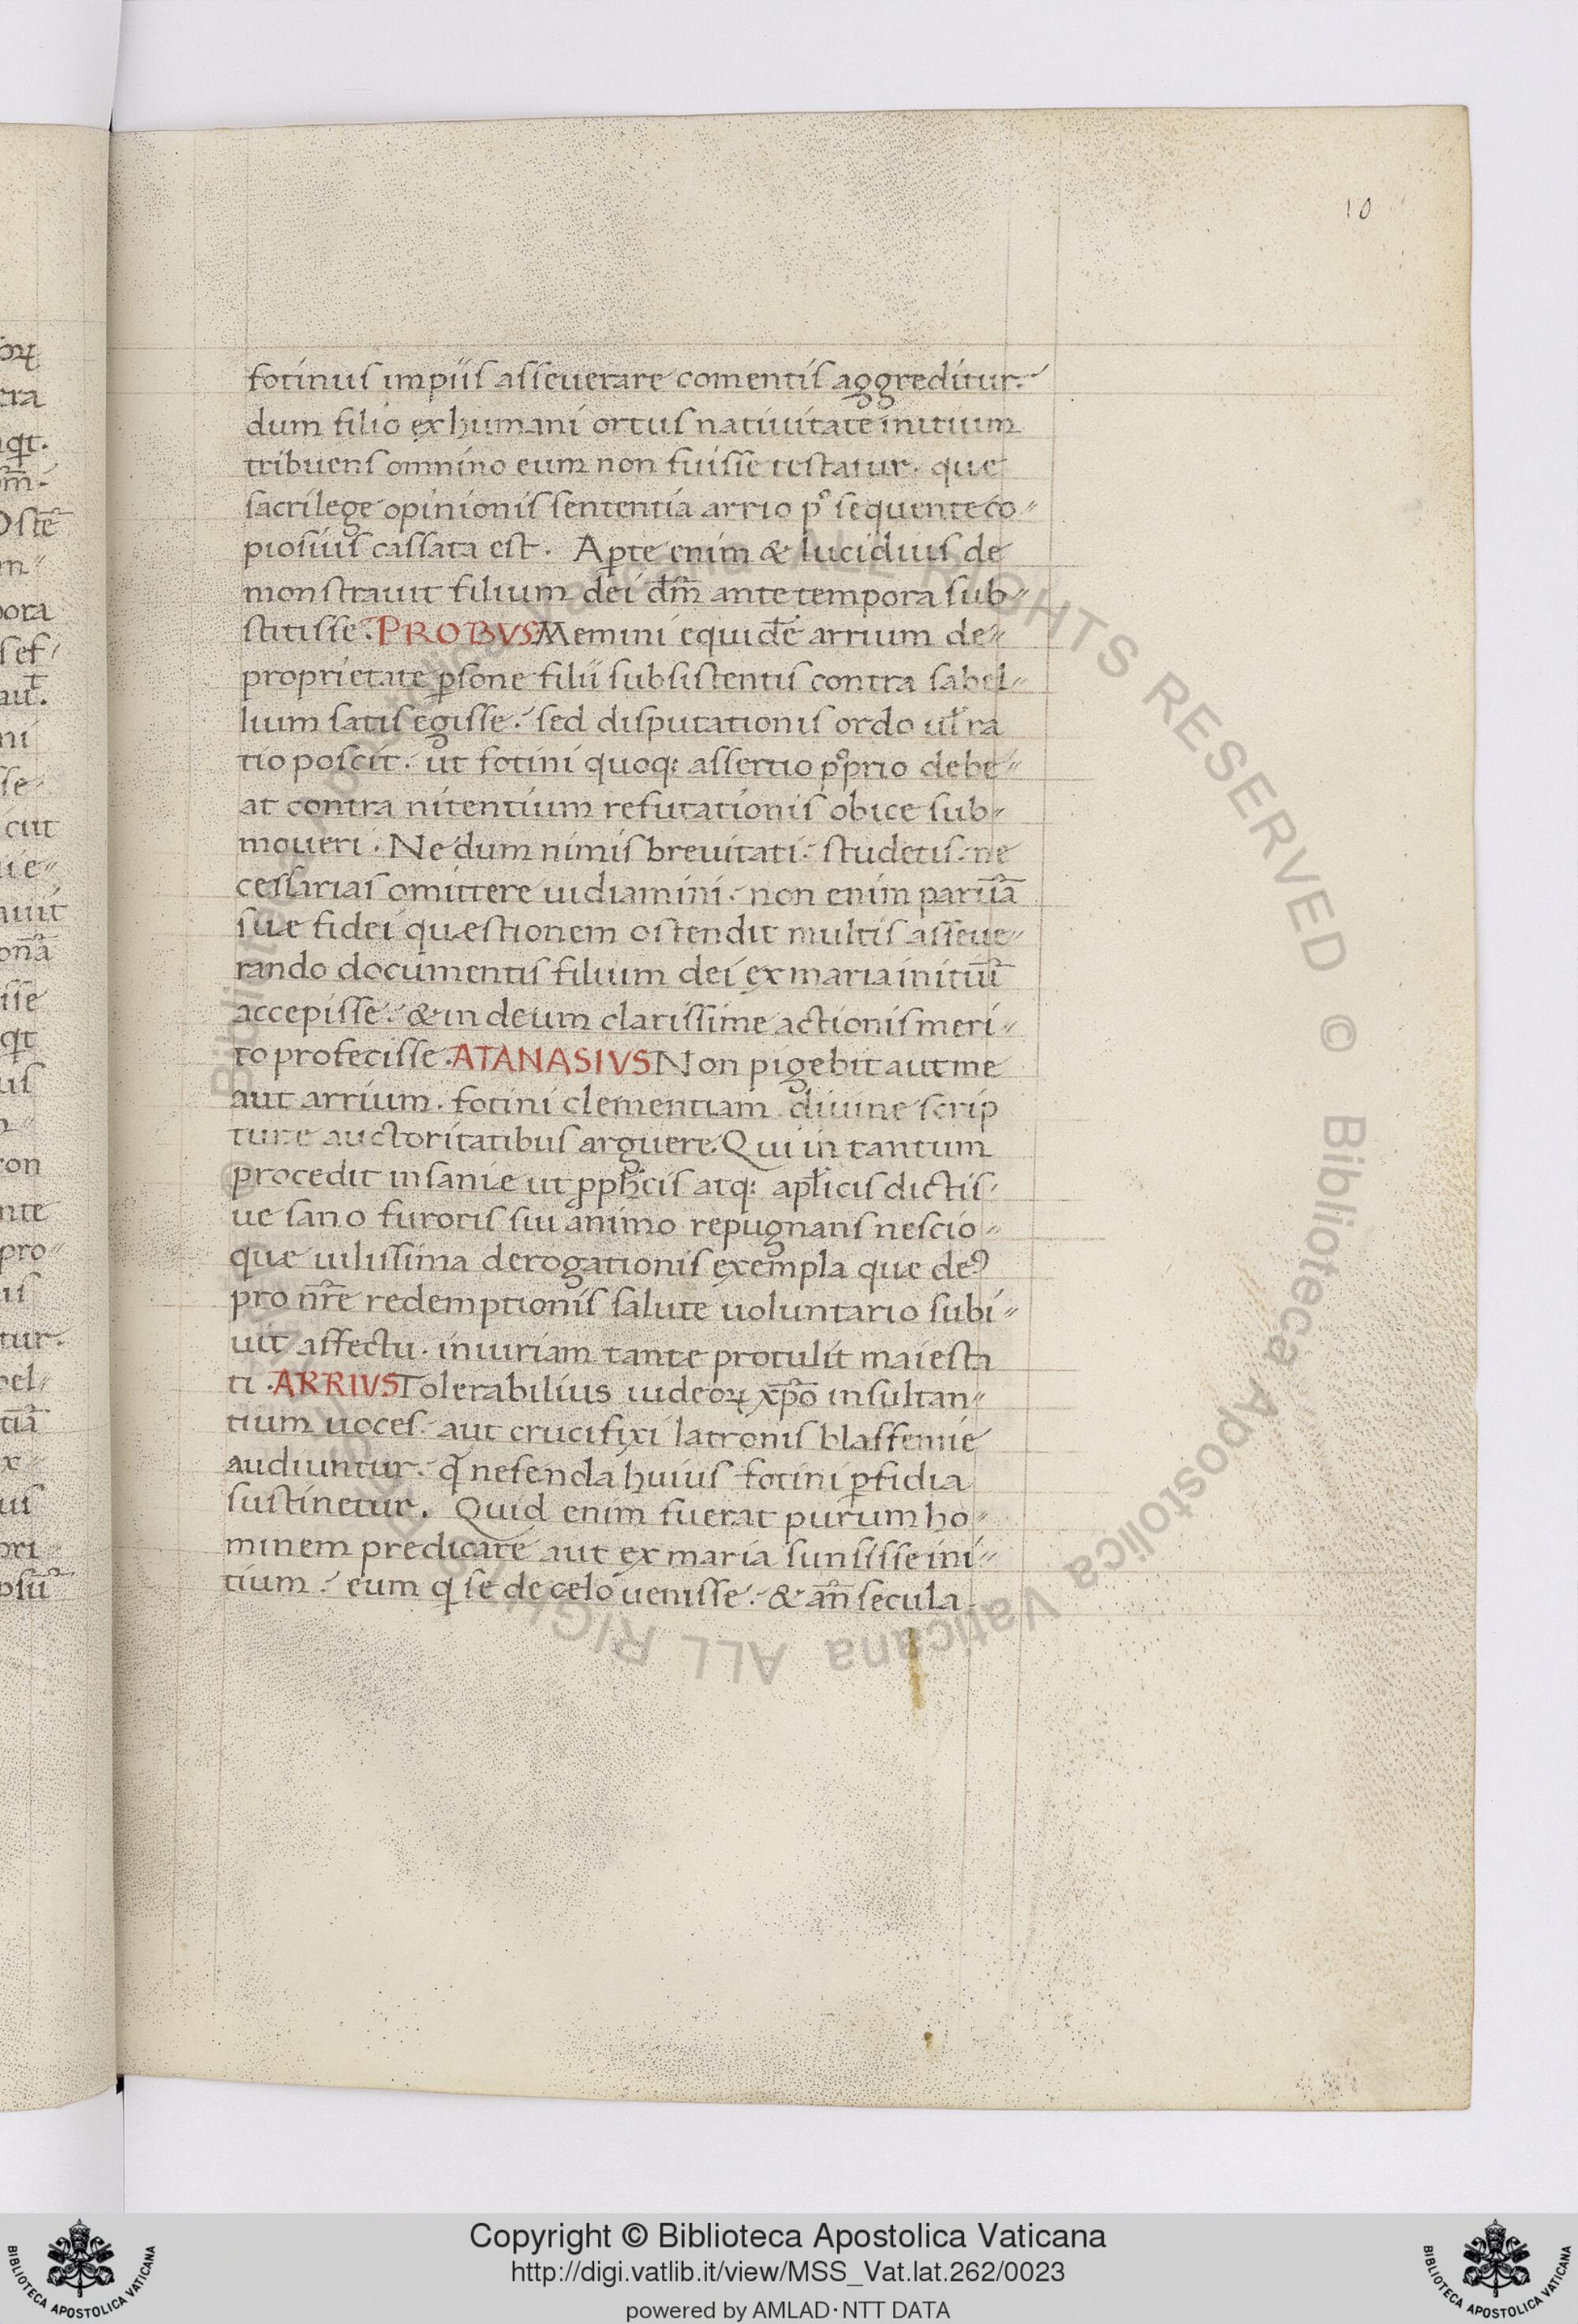 10
fotinus impiis asseuerare comentis aggreditur.
dum filio ex humani ortus natiuitate initium
tribuens omnino eum non fuisse testatur. que
sacrilege opinionis sententia arrio p̊ sequente co-
piosius cassata est. Apte enim & lucidius de
monstrauit filium dei dm̄ ante tempora sub-
stitisse. PROBVS Memini equidē arrium de-
proprietate ꝑsone filii subsistentis contra sabel-
lium satis egisse. sed disputationis ordo ul̄ ra
tio poscit. ut fotini quoq: assertio p̊prio debe-
at contra nitentium refutationis obice sub-
moueri. Ne dum nimis breuitati. studetis. ne
cessarias omittere uidiamini. non enim paruā
suæ fidei quæstionem ostendit multis asseue-
rando documentis filium dei ex maria initiū
accepisse. & in deum clarissime actionis meri-
to profecisse. ATANASIVS Non pigebit aut me
aut arrium. fotini clementiam diuine scrip
ture auctoritatibus arguere. Qui in tantum
procedit insaniæ ut ꝓpħcis atq: apl̄icis dictis.
ue sano furoris sui animo repugnans nescio-
quæ uilissima derogationis exempla quæ deꝰ
pro nr̄e redemptionis salute uoluntario subi-
uit affectu. iniuriam tantæ protulit maiesta
ti. ARRIVS Tolerabilius iudeoꝝ xp̄o insultan-
tium uoces. aut crucifixi latronis blasfemie
audiuntur. q̄ nefenda huius fotini ꝑfidia
sustinetur. Quid enim fuerat purum ho-
minem predicare aut ex maria sunsisse ini-
tium. eum q se de celo uenisse. & an̄ secula
Copyright © Biblioteca Apostolica Vaticana
http://digi.vatlib.it/view/MSS_Vat.lat.262/0023
powered by AMLAD·NTT DATA